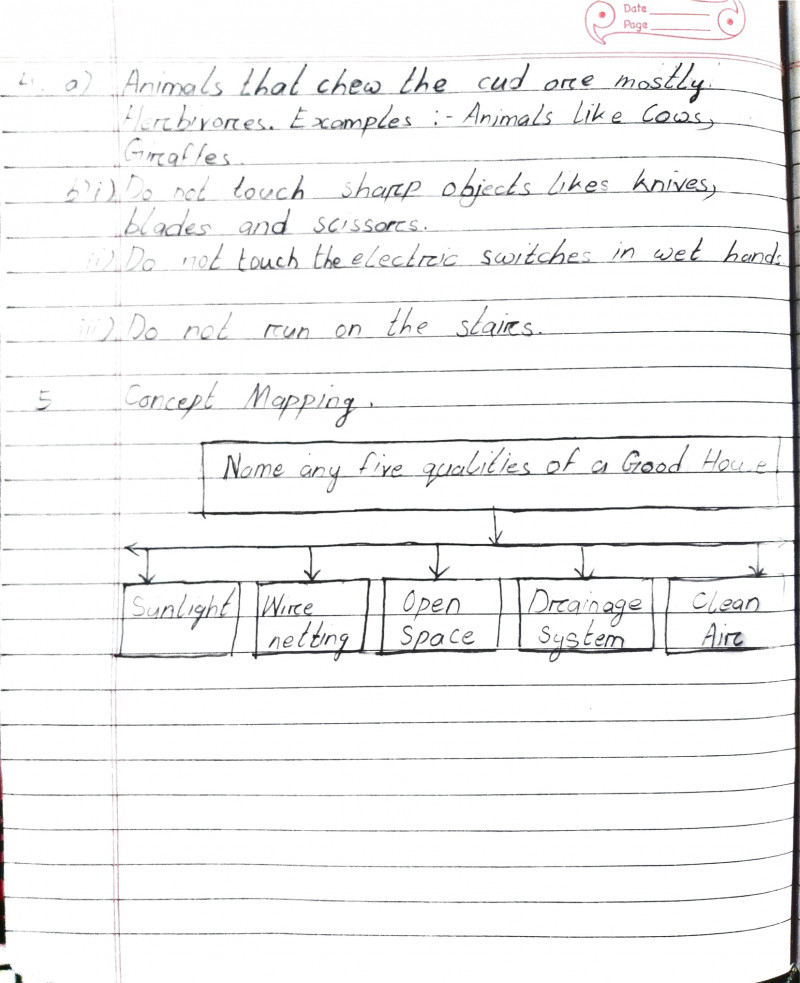 Date
Page
4. a) Animals that chew the cud are mostly
Herbivores. Examples :- Animals like Cows,
Giraffes.
b) i) Do not touch sharp objects likes knives,
blades and scissors.
ii) Do not touch the electric switches in wet hands
iii) Do not run on the stairs.
5 Concept Mapping.
Name any five qualities of a Good House
Sunlight
Wire
netting
Open
Space
Drainage
System
Clean
Air